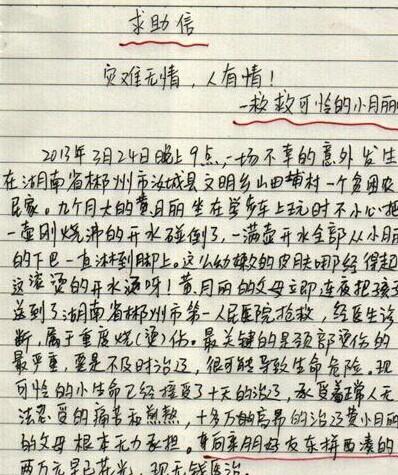 求助信
灾难无情，人有情！
—救救可怜的小月丽
2013年3月24日晚上9点，一场不幸的意外发生
在湖南省郴州市汝城县文明乡山田铺村一个贫困农
民家。九个月大的黄月丽坐在学步车上玩时不小心把
一壶刚烧沸的开水碰倒了，一满壶开水全部从小月丽
的下巴一直淋到脚上。这么幼嫩的皮肤哪经得起
这滚烫的开水浇呀！黄月丽的父母立即连夜把孩子
送到了湖南省郴州市第一人民医院抢救，经医生诊
断，属于重度烧（烫）伤。最关键的是颈部烫伤的
最严重，要是不及时治疗，很可能导致生命危险。现
可怜的小生命已经接受了十天的治疗，承受着正常人无
法忍受的痛苦和煎熬，十多万的高昂的治疗费小月丽
的父母根本无力承担。在向亲朋好友东拼西凑的
两万元早已花光，现无钱医治。